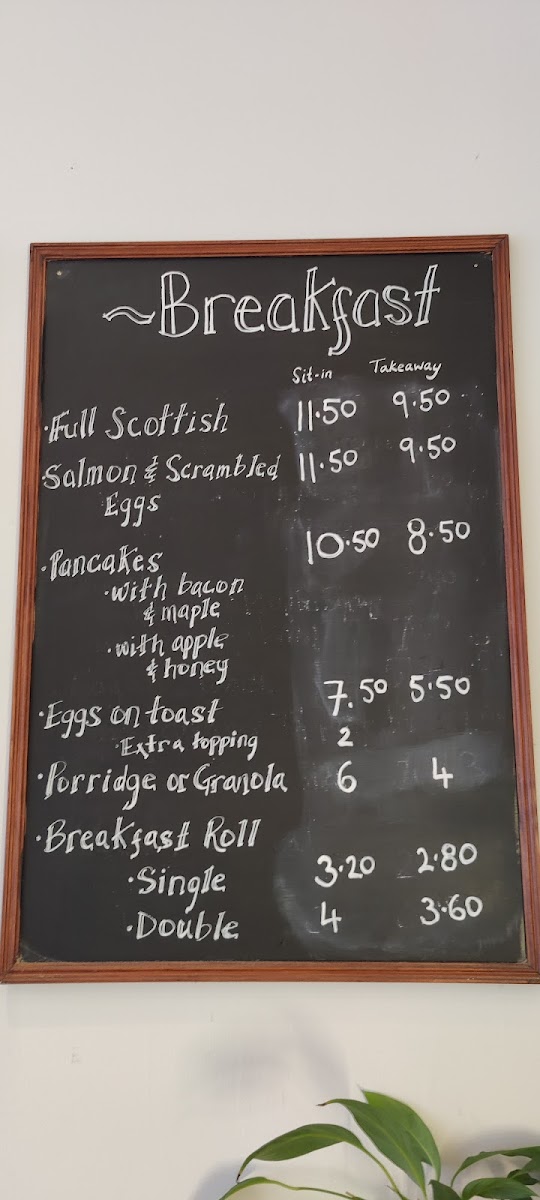 ~Breakfast
Sit-in Takeaway
·Full Scottish 11·50 9·50
·Salmon & Scrambled 11·50 9·50
Eggs
·Pancakes 10·50 8·50
·with bacon
& maple
·with apple
& honey
·Eggs on toast 7.50 5·50
·Extra topping 2
·Porridge or Granola 6 4
·Breakfast Roll
·Single 3·20 2·80
·Double 4 3·60